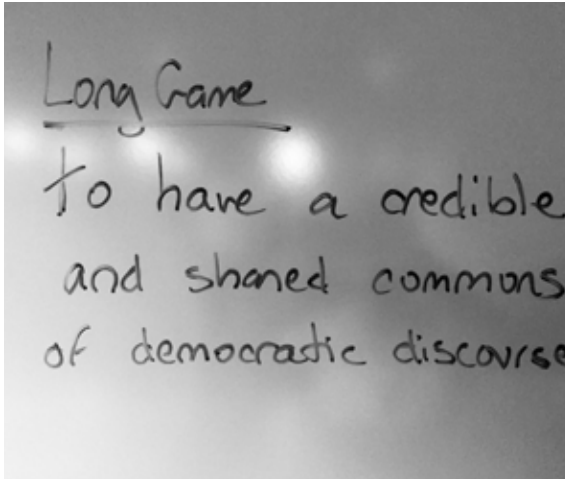 Long Game
to have a credible
and shared commons
of democratic discourse